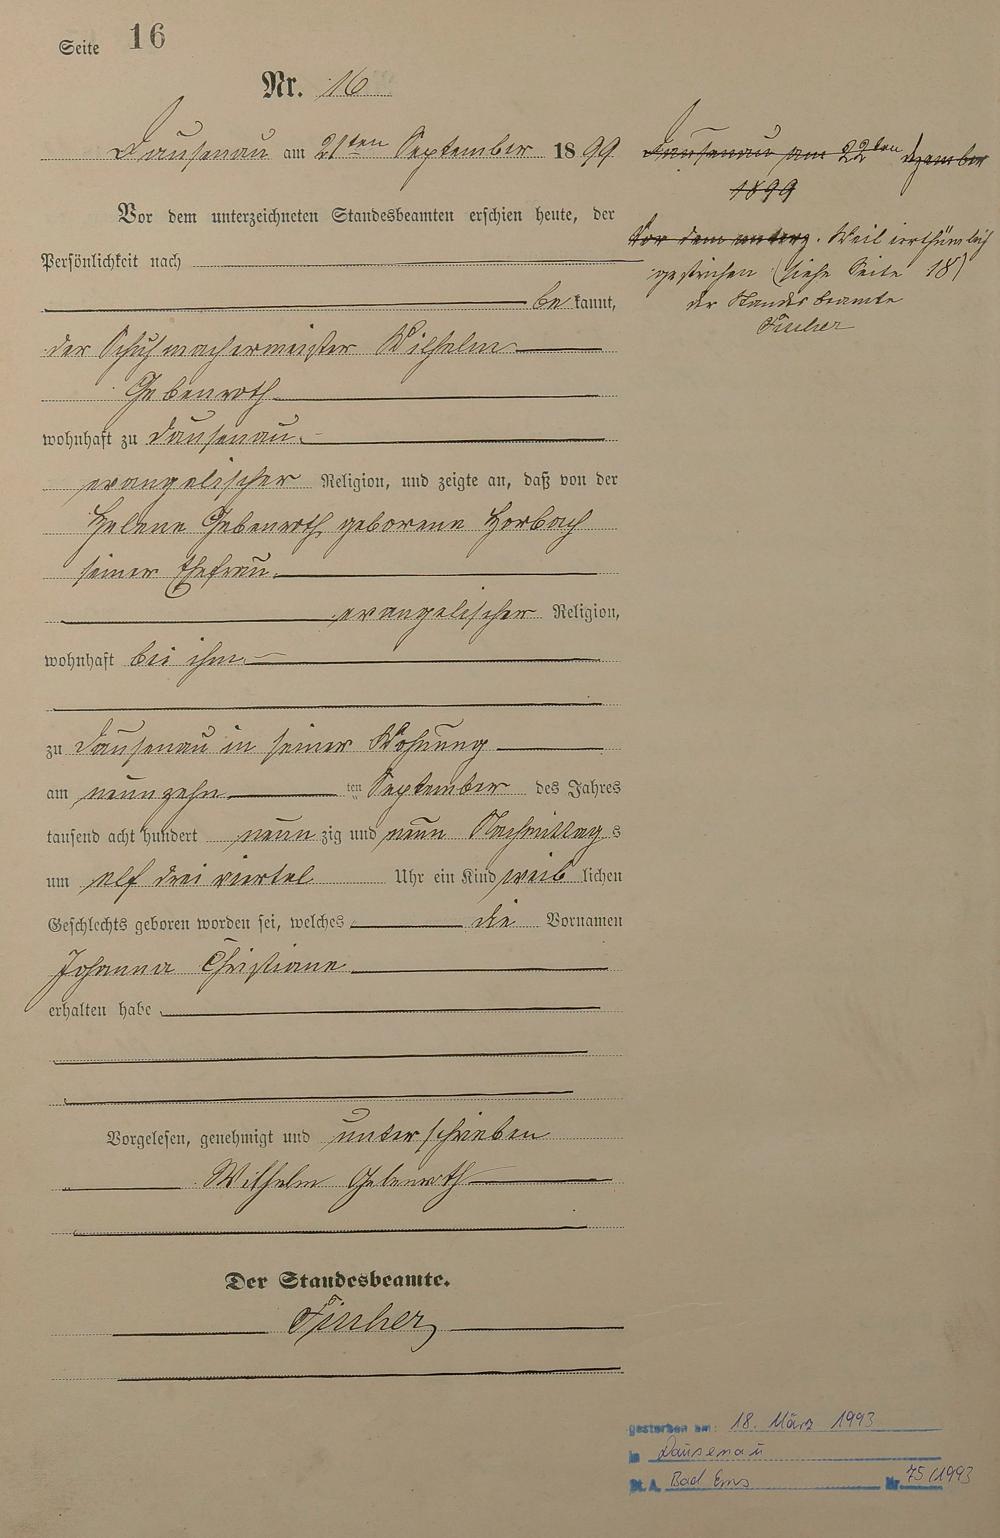 Seite 16
Nr. 16
Dausenau am 21ten September 1899
Vor dem unterzeichneten Standesbeamten erschien heute, der
Persönlichkeit nach
be kannt,
der Schuhmachermeister Wilhelm
Gebenroth
wohnhaft zu Dausenau
evangelischer Religion, und zeigte an, daß von der
Helene Gebenroth geborene Horbach
seiner Ehefrau
evangelischer Religion,
wohnhaft bei ihm
zu Dausenau in seiner Wohnung
am neunzehn ten September des Jahres
tausend acht hundert neun zig und neun Nachmittag s
um elf drei viertel Uhr ein Kind weib lichen
Geschlechts geboren worden sei, welches die Vornamen
Johanna Christiane
erhalten habe
Vorgelesen, genehmigt und unterschrieben
Wilhelm Gebenroth
Der Standesbeamte.
Fischer
Dausenau am 22ten Dezember
1899
Vor dem unterz. Weil irrthümlich
gestrichen (siehe Seite 18)
der Standesbeamte
Fischer
gestorben am: 18. März 1993
in Dausenau
St. A. Bad Ems Nr. 75/1993